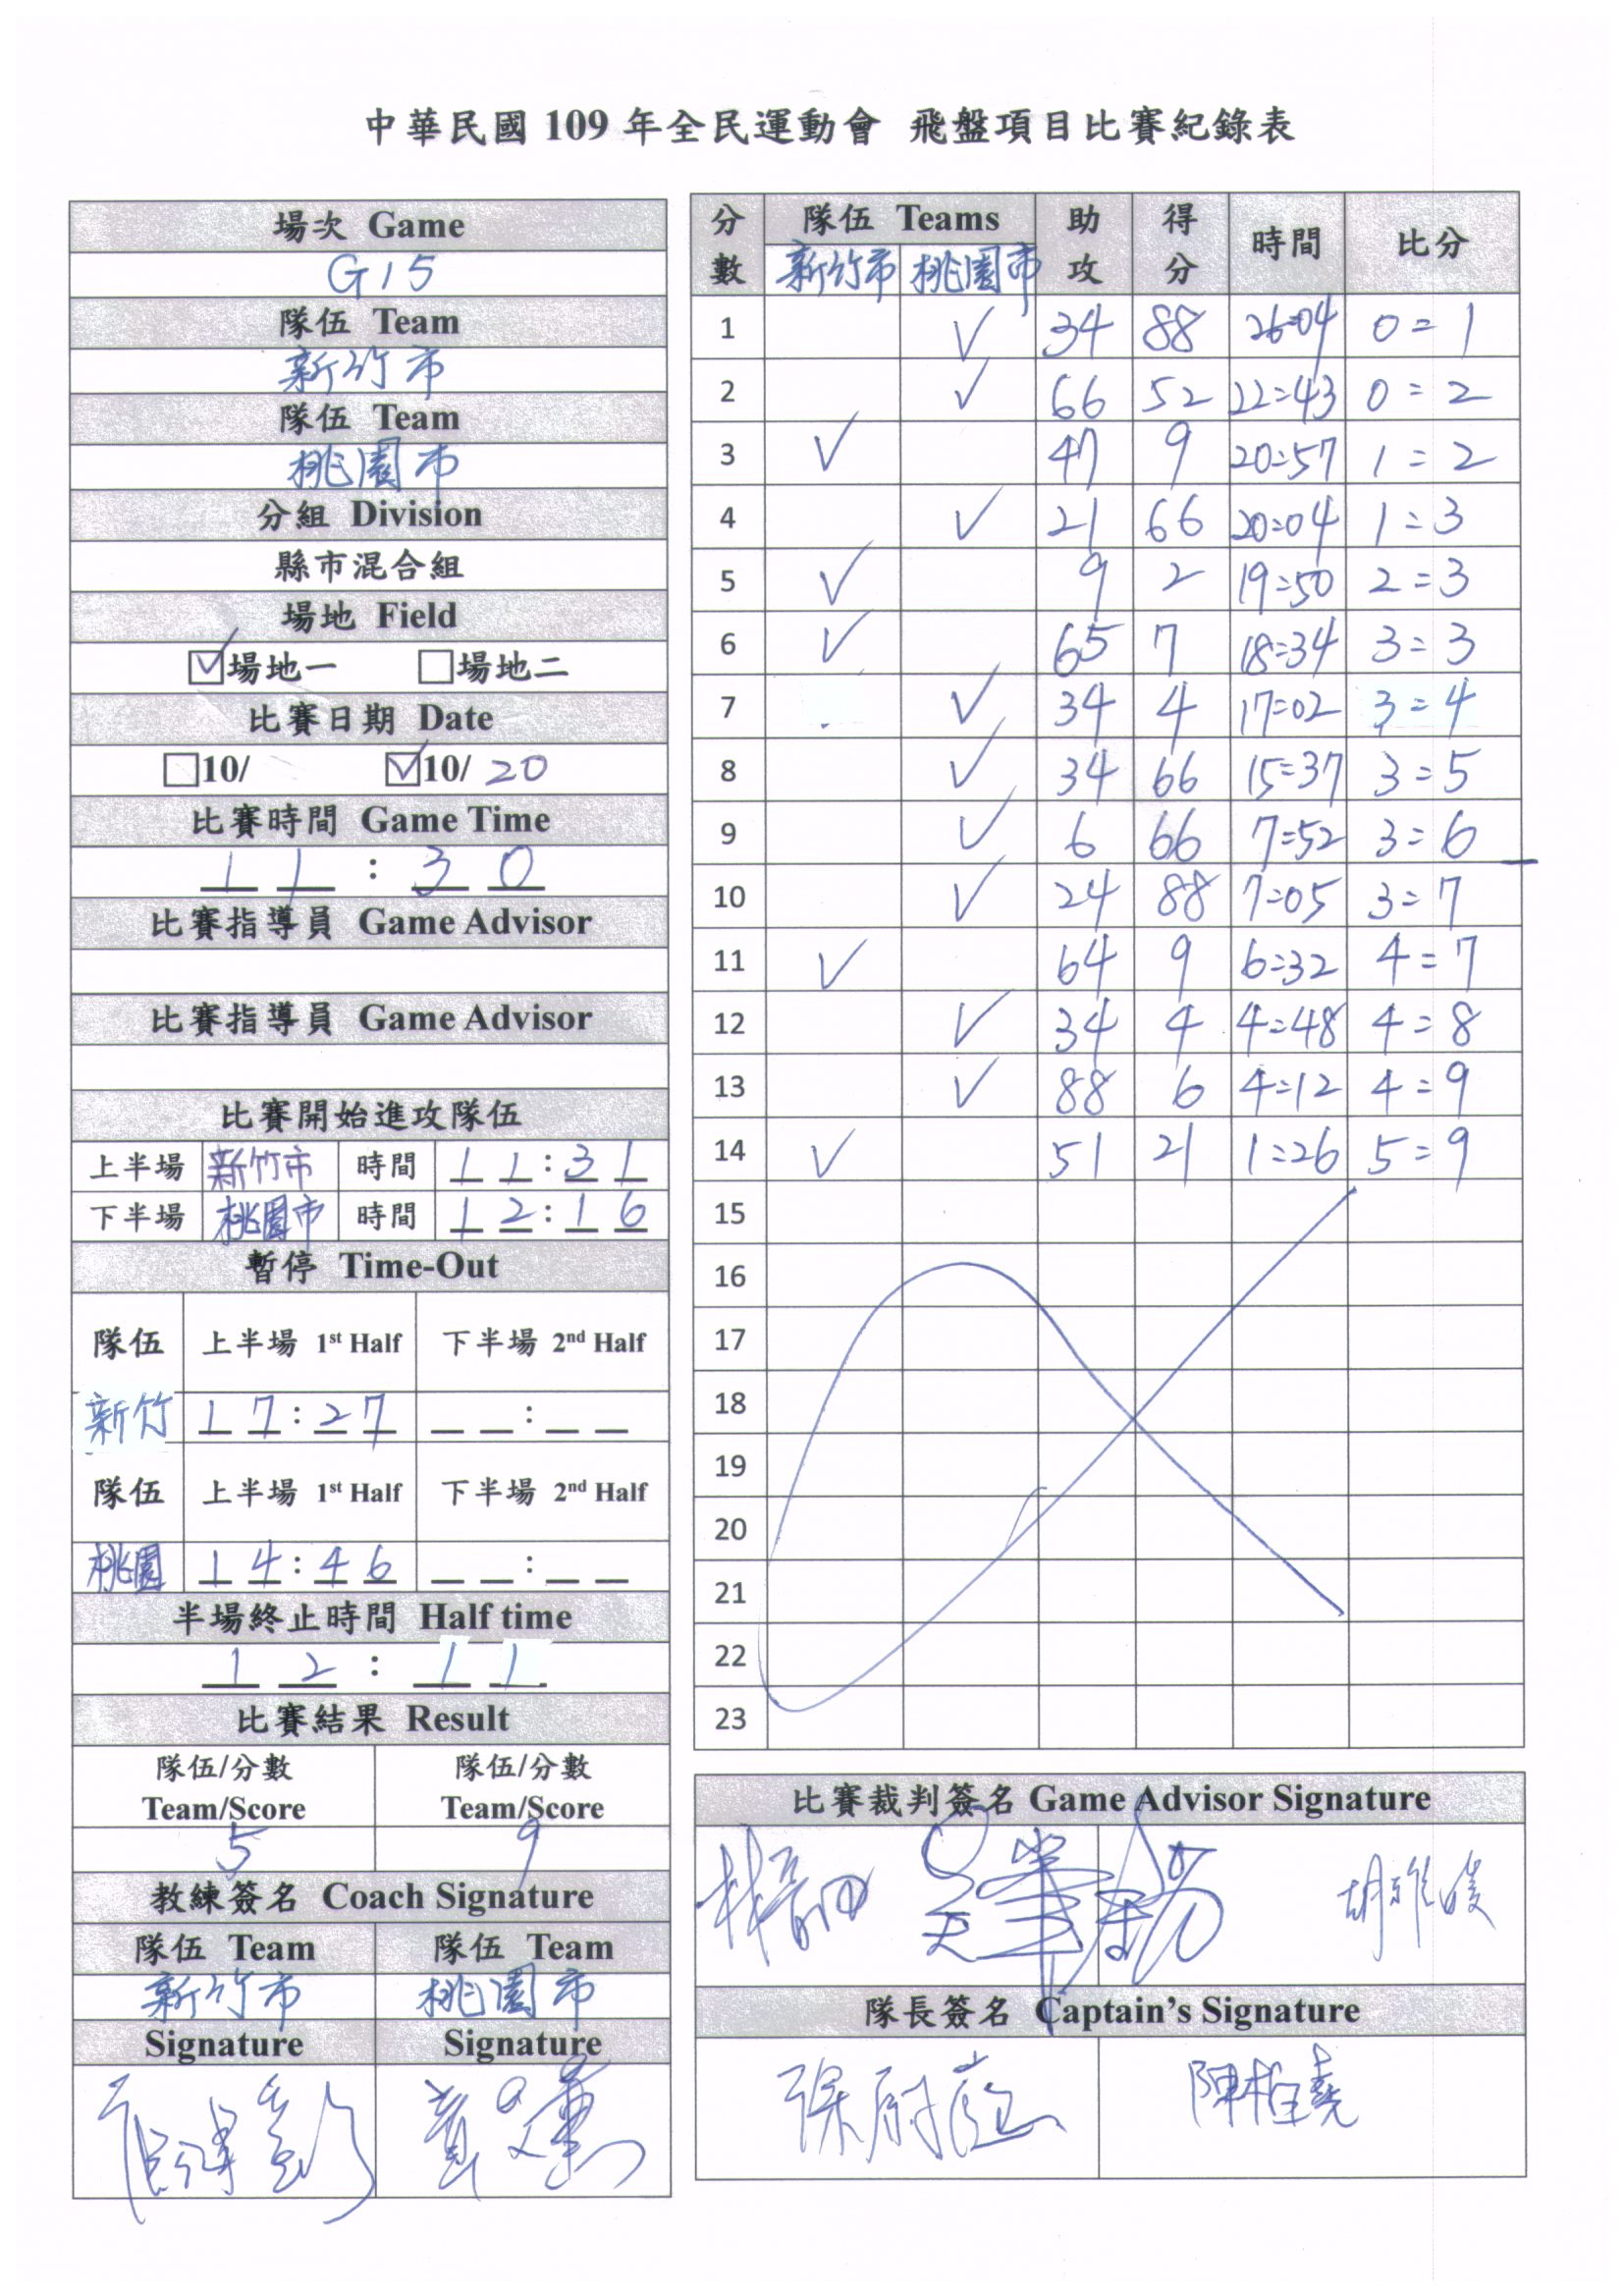 中華民國 109 年全民運動會 飛盤項目比賽紀錄表
場次 Game
G15
隊伍 Team
新竹市
隊伍 Team
桃園市
分組 Division
縣市混合組
場地 Field
場地一 場地二
比賽日期 Date
10/ 10/ 20
比賽時間 Game Time
11:30
比賽指導員 Game Advisor
比賽指導員 Game Advisor
比賽開始進攻隊伍
上半場 新竹市 時間 11:31
下半場 桃園市 時間 12:16
暫停 Time-Out
隊伍 上半場 1st Half 下半場 2nd Half
新竹 17:27 __:__
隊伍 上半場 1st Half 下半場 2nd Half
桃園 14:46 __:__
半場終止時間 Half time
12:11
比賽結果 Result
隊伍/分數 隊伍/分數
Team/Score Team/Score
5 9
教練簽名 Coach Signature
隊伍 Team 隊伍 Team
新竹市 桃園市
Signature Signature
分數 隊伍 Teams 助攻 得分 時間 比分
新竹市 桃園市
1 ✓ 34 88 26=04 0=1
2 ✓ 66 52 22=43 0=2
3 ✓ 47 9 20=57 1=2
4 ✓ 21 66 20=04 1=3
5 ✓ 9 2 19=50 2=3
6 ✓ 65 7 18=34 3=3
7 ✓ 34 4 17=02 3=4
8 ✓ 34 66 15=37 3=5
9 ✓ 6 66 7=52 3=6
10 ✓ 24 88 7=05 3=7
11 ✓ 64 9 6=32 4=7
12 ✓ 34 4 4=48 4=8
13 ✓ 88 6 4=12 4=9
14 ✓ 51 21 1=26 5=9
15
16
17
18
19
20
21
22
23
比賽裁判簽名 Game Advisor Signature
隊長簽名 Captain's Signature